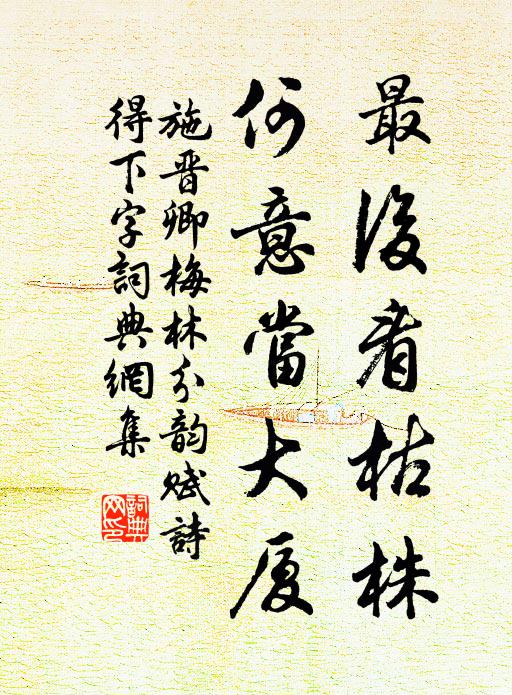 最後看枯株
何意當大厦
施晋卿梅林分韵賦詩
得下字詞典網集
詞典
网印